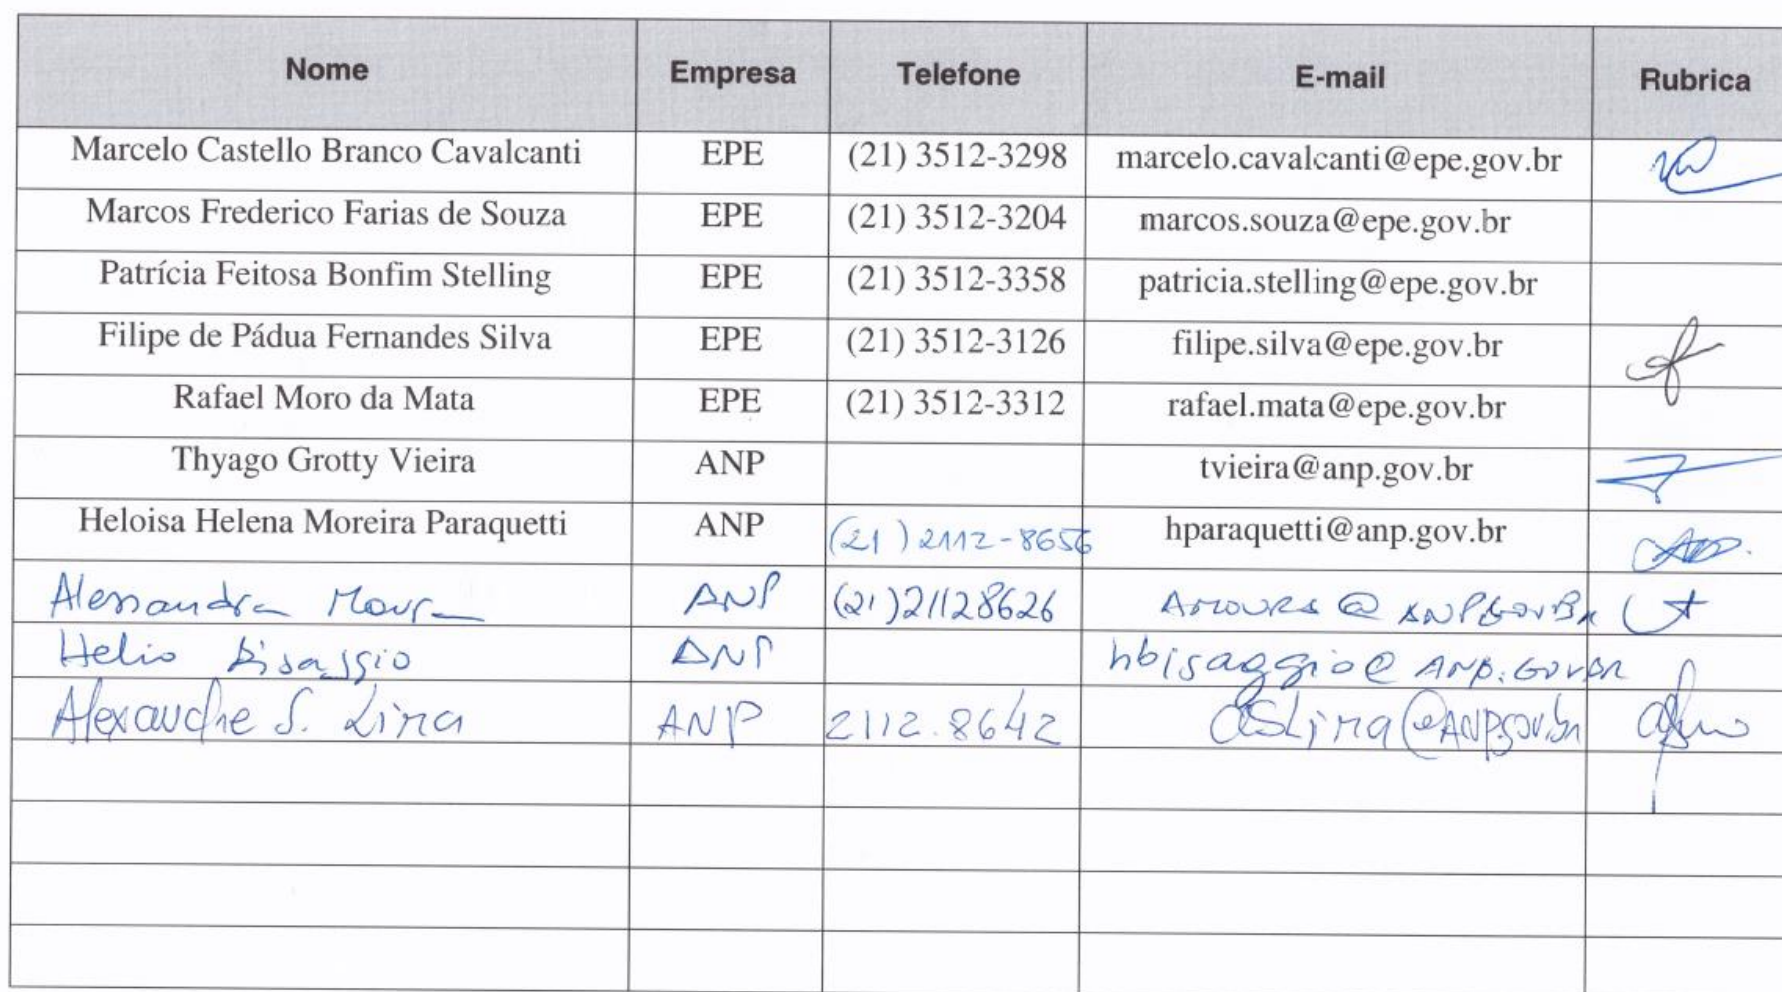 Nome Empresa Telefone E-mail Rubrica
Marcelo Castello Branco Cavalcanti EPE (21) 3512-3298 marcelo.cavalcanti@epe.gov.br
Marcos Frederico Farias de Souza EPE (21) 3512-3204 marcos.souza@epe.gov.br
Patrícia Feitosa Bonfim Stelling EPE (21) 3512-3358 patricia.stelling@epe.gov.br
Filipe de Pádua Fernandes Silva EPE (21) 3512-3126 filipe.silva@epe.gov.br
Rafael Moro da Mata EPE (21) 3512-3312 rafael.mata@epe.gov.br
Thyago Grotty Vieira ANP tvieira@anp.gov.br
Heloisa Helena Moreira Paraquetti ANP (21) 2112-8656 hparaquetti@anp.gov.br
Alessandra Moura ANP (21)21128626 AMOURA@ANP.GOV.BR
Helio Bisaggio ANP hbisaggio@ANP.GOV.BR
Alexandre S. Lima ANP 2112.8642 asLima@ANP.gov.br